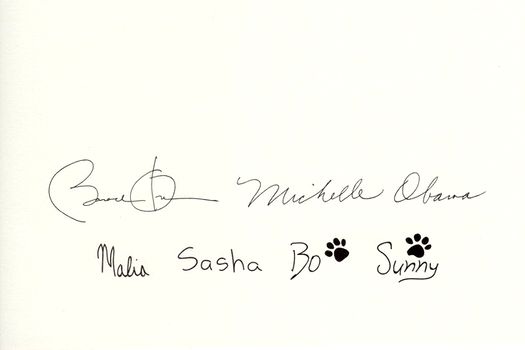 Barack Obama Michelle Obama
Malia Sasha Bo Sunny